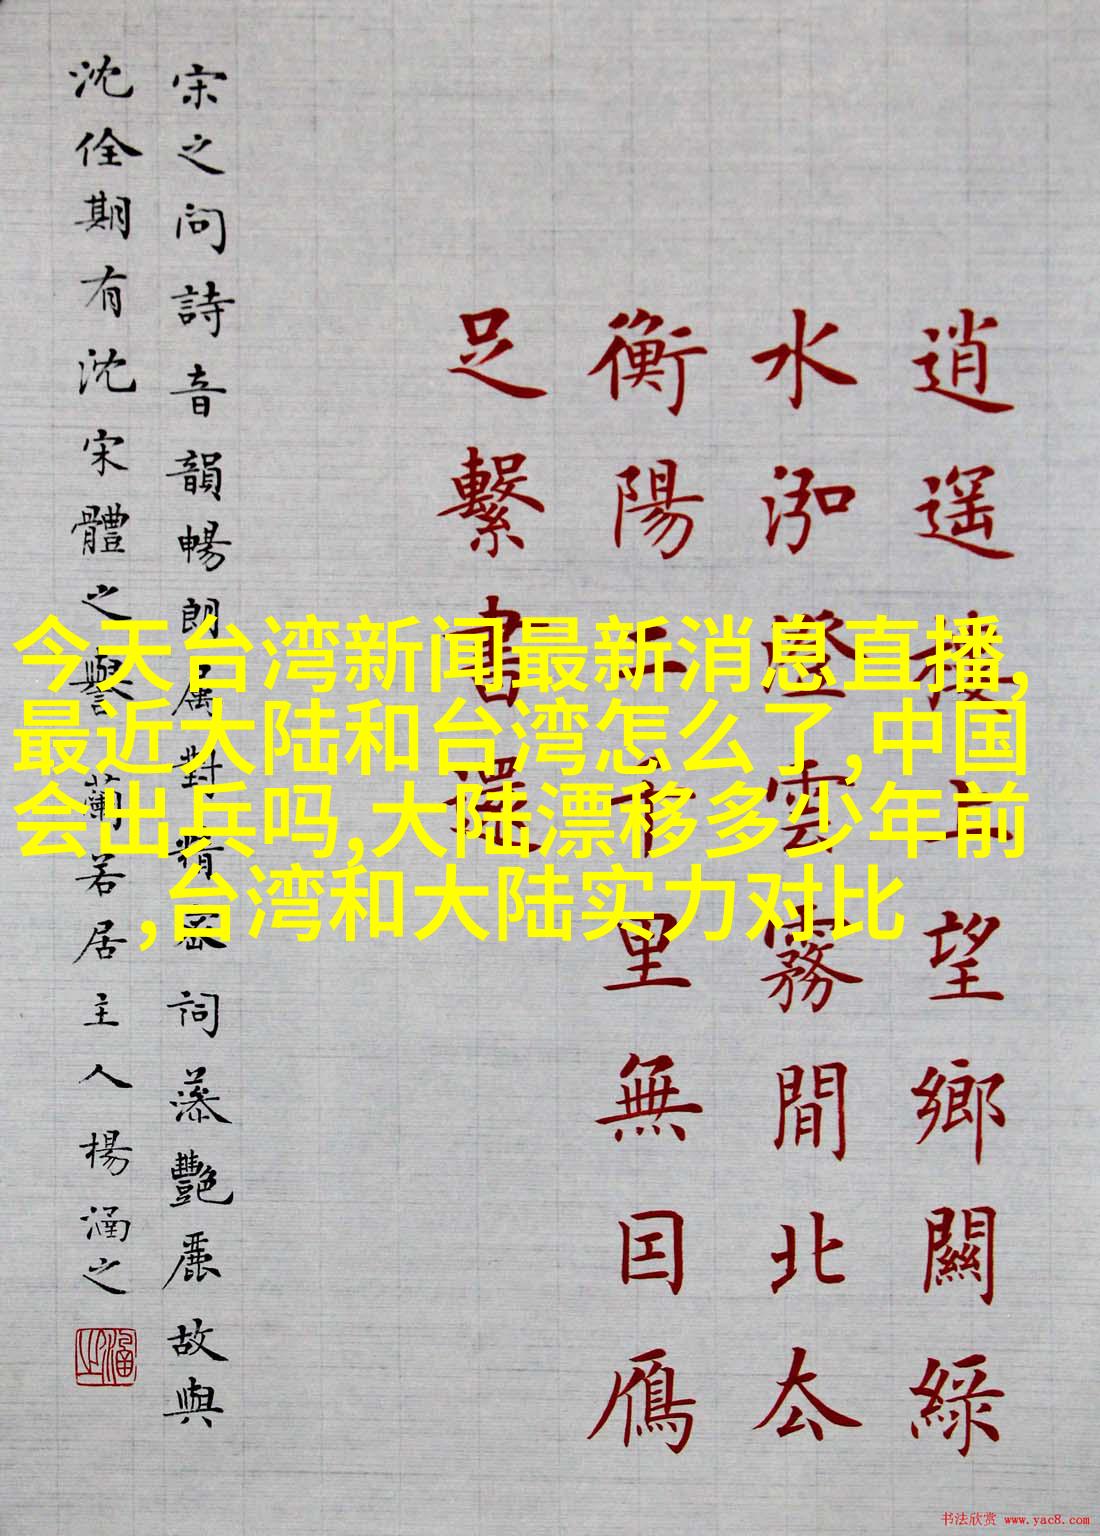 今天台湾新闻最新消息直播,
最近大陆和台湾怎么了,中国
会出兵吗,大陆漂移多少年前
,台湾和大陆实力对比
逍遥樓上望鄉關綠
水泓澄雲霧間北去
衡陽二千里無囙鴈
足繫書還
宋之问詩音韻暢朗属對精密詞藻艷麗故與
沈佺期有沈宋體之譽蘭若居主人楊涵之
书法欣赏 www.yac8.com